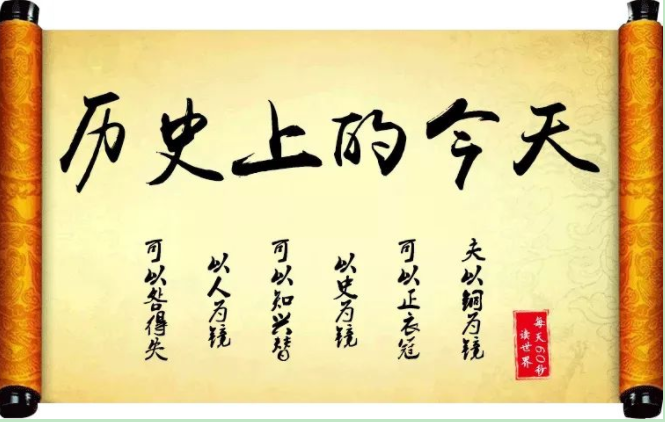 历史上的今天
夫以铜为镜
可以正衣冠
以史为镜
可以知兴替
以人为镜
可以咎得失
每天60秒
读世界